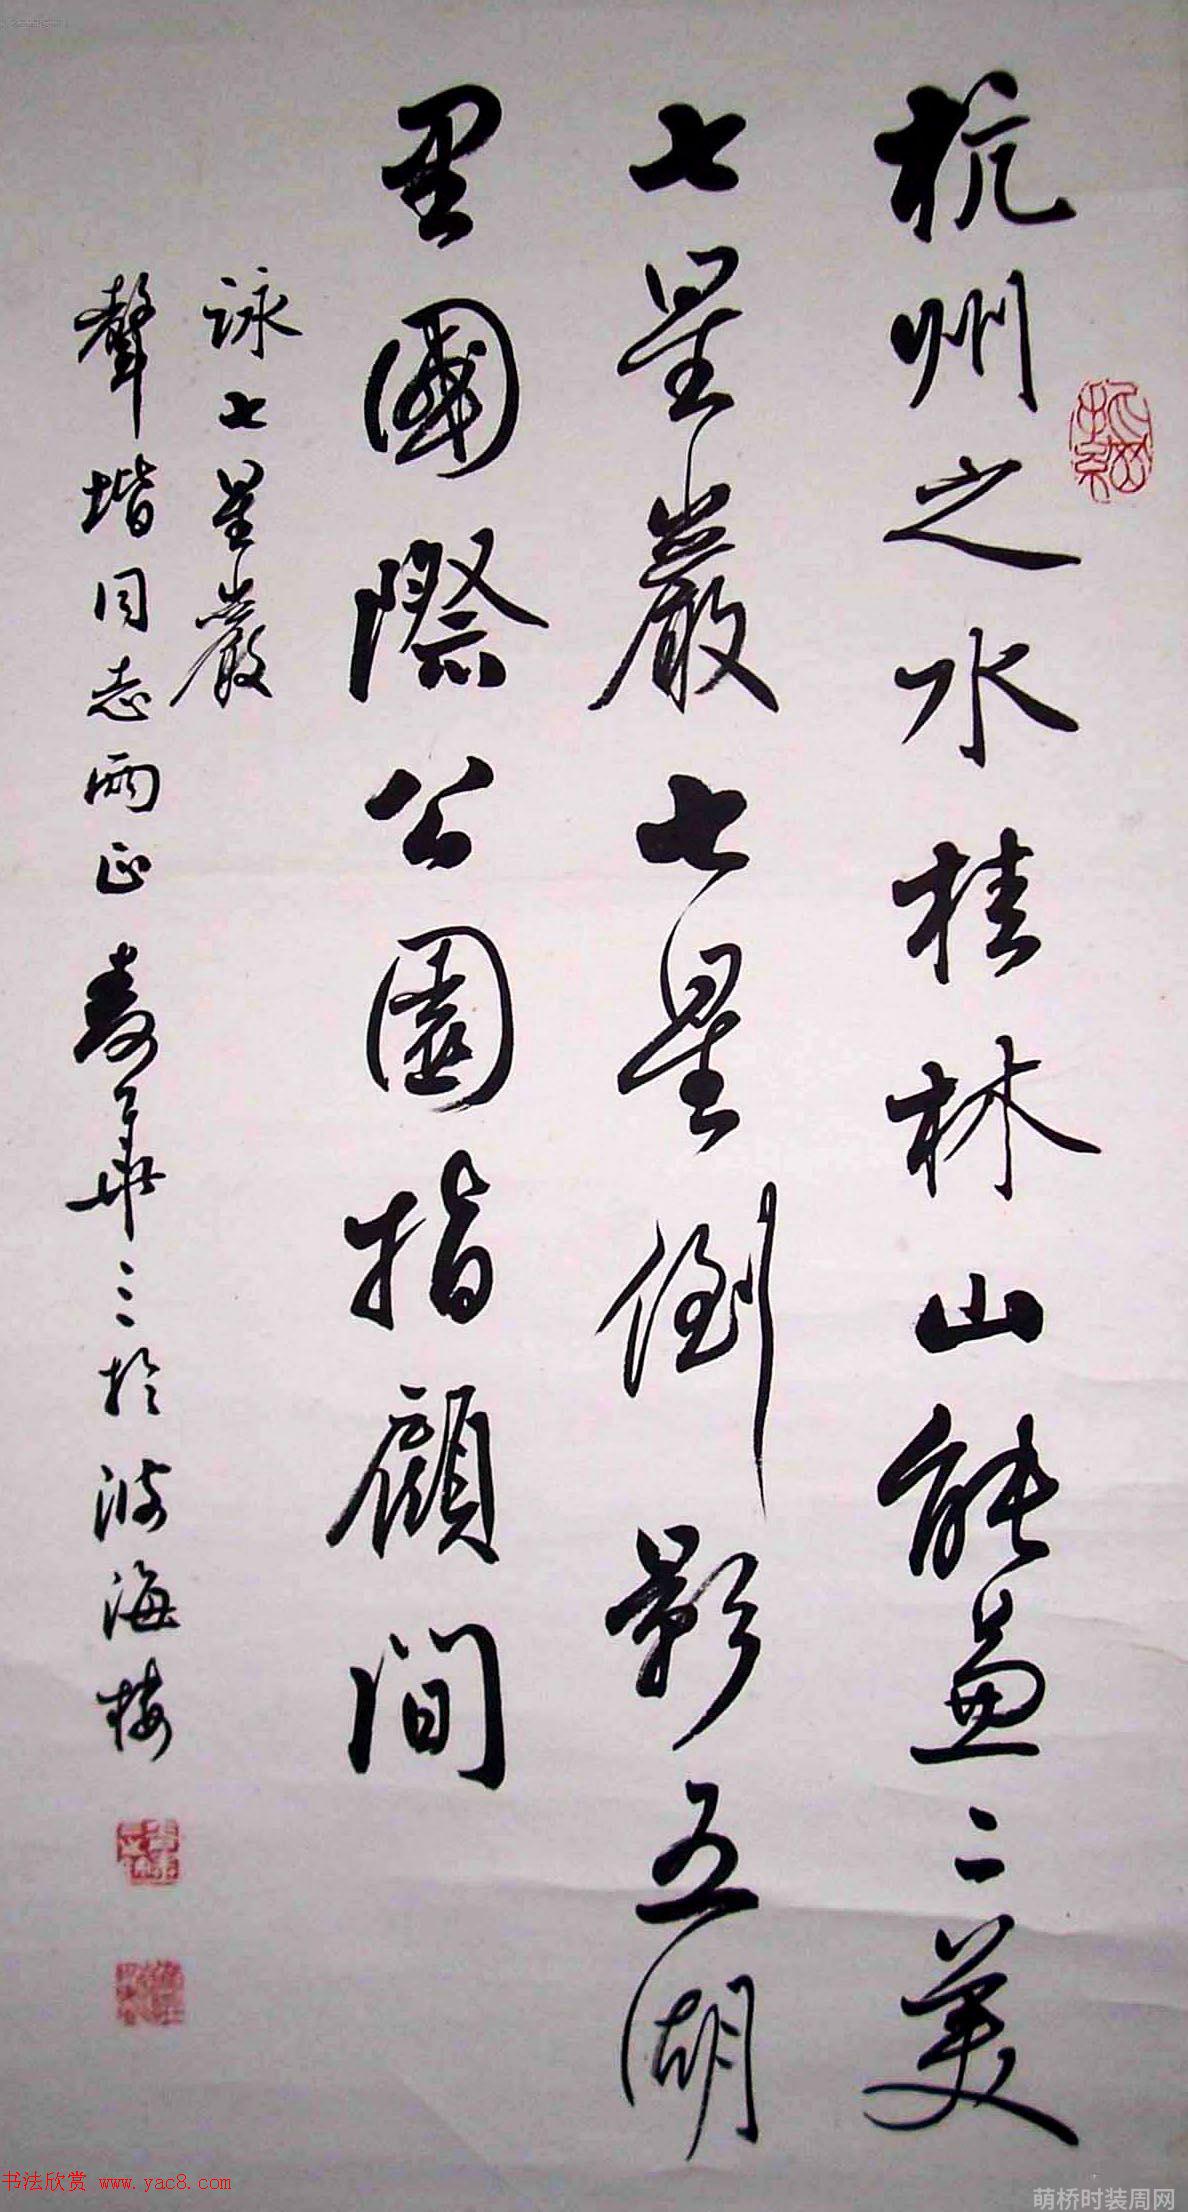 杭州之水桂林山能兼二美
七星巖七星倒影五湖
里國際公園指顧間
詠七星巖
聲堦同志兩正 壽華三於波海樓
书法欣赏 www.yac8.com
萌桥时装周网